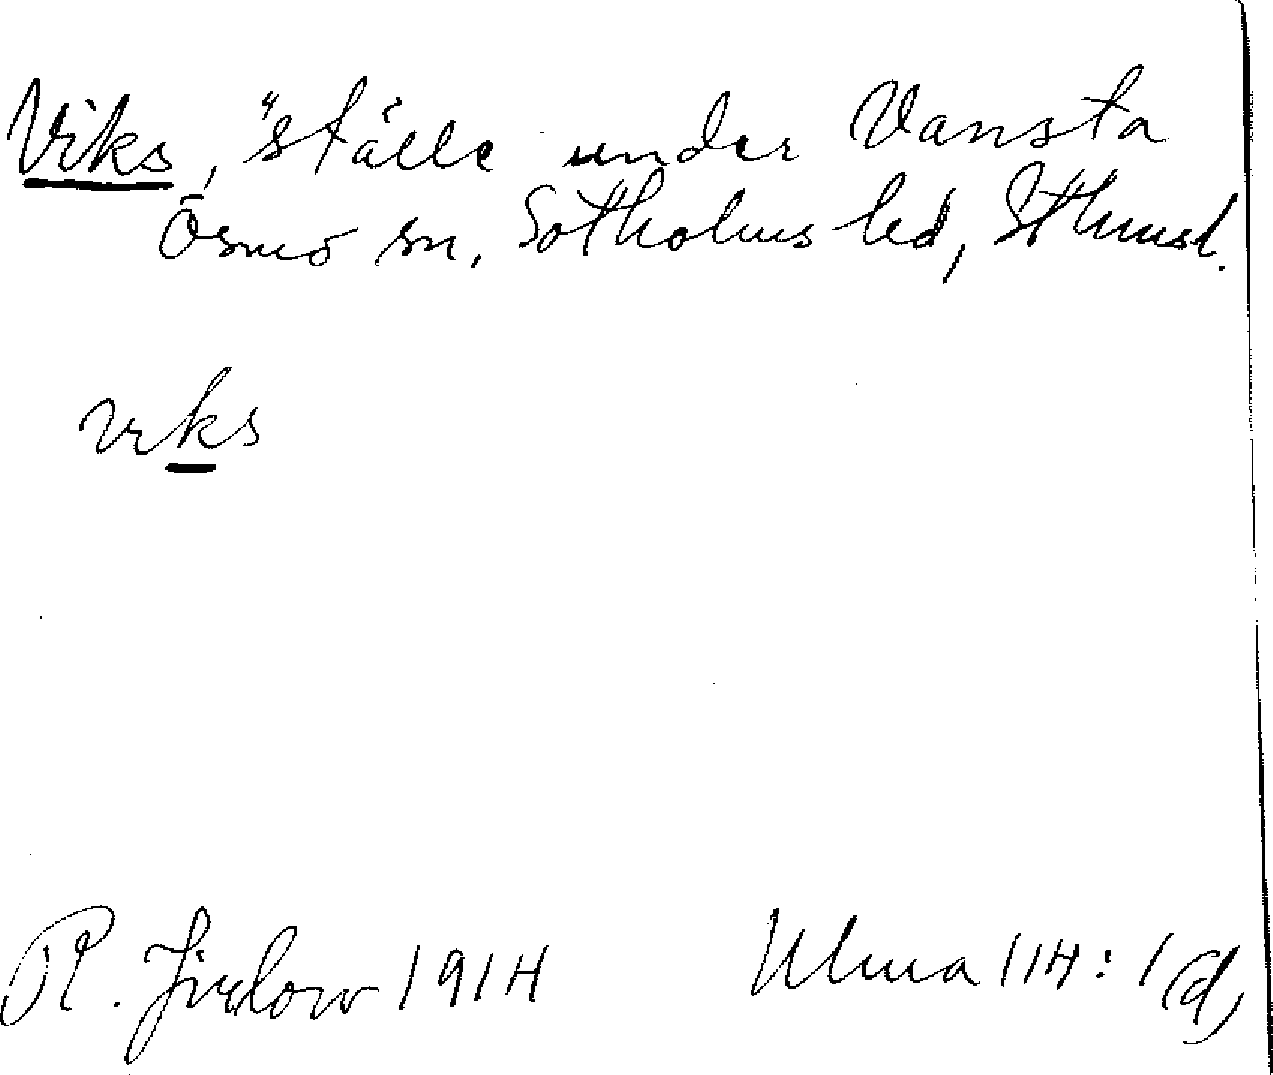 Viks, "ställe under Vansta
Ösmo sn, Sotholms hd, Sthmsl.
viks
R. Jirlow 1914
Ulma 114:1(d)